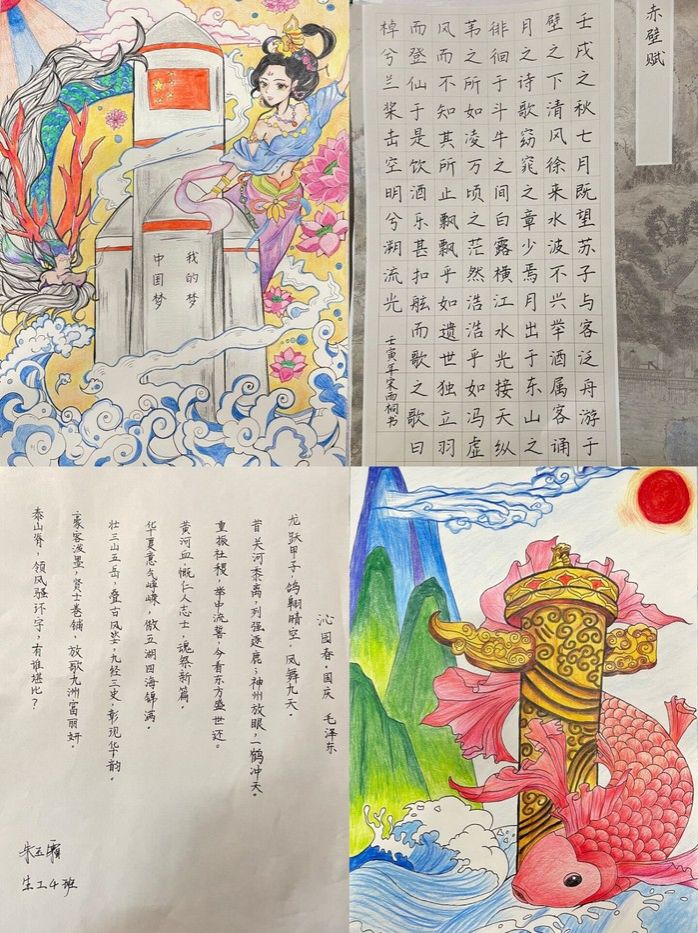 我的梦
中国梦
赤壁赋
壬戌之秋七月既望苏子与客泛舟游于
壁之下清风徐来水波不兴举酒属客诵
月之诗歌窈窕之章少焉月出于东山之
徘徊于斗牛之间白露横江水光接天纵
苇之所如凌万顷之茫然浩浩乎如冯虚
风而不知其所止飘飘乎如遗世独立羽
而登仙于是饮酒乐甚扣舷而歌之歌曰
棹兮兰桨击空明兮朔流光
壬寅年宋雨桐书
沁园春·国庆 毛泽东
龙跃甲子，鸽翱晴空，凤舞九天。
昔关河黍离，列强逐鹿；神州放眼，一鹤冲天。
重振社稷，举中流誓，今看东方盛世还。
黄河血，慨仁人志士，魂祭新篇。
华夏意气峥嵘，傲五湖四海锦满。
壮三山五岳，叠古风姿，九经三史，彰现华韵。
豪客泼墨，贤士卷铺，放歌九洲富丽妍。
泰山脊，领风骚环宇，有谁堪比？
生工4班